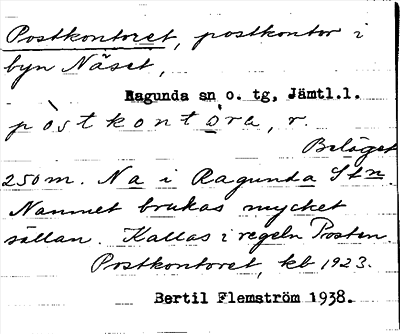 Postkontoret, postkontor i
byn Näset,
Ragunda sn o. tg, Jämtl.l.
pòstkontó̱ra, r.
Beläget
250m. Na i Ragunda Stn.
Namnet brukas mycket
sällan. Kallas i regeln Posten
Postkontoret, kbl 1923.
Bertil Flemström 1938.